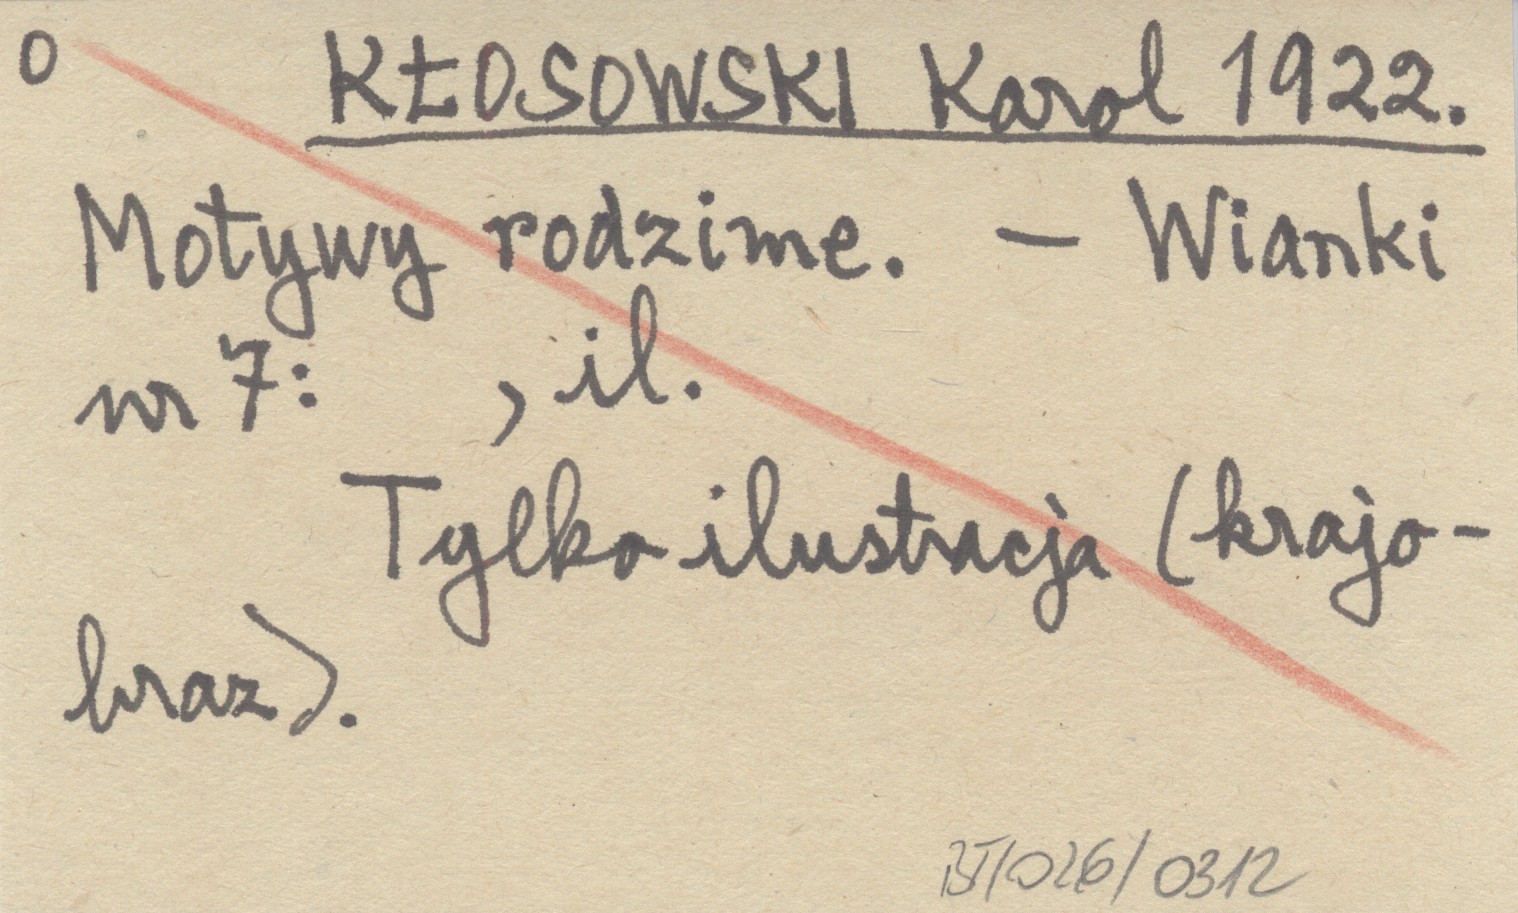 0 KŁOSOWSKI Karol 1922.
Motywy rodzime. – Wianki
nr 7: , il.
Tylko ilustracja (krajo-
braz).
BT/026/0312